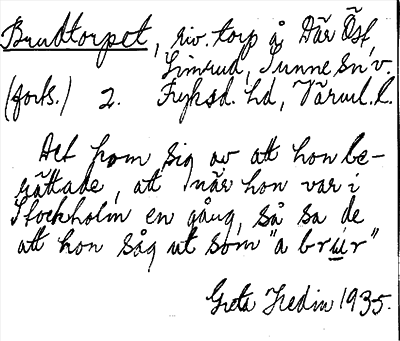 Brudtorpet, riv. torp å Där Öst,
Limrud, Sunne sn v.
(forts.) 2. Fryksd. hd, Värml. l.
Det kom sig av att hon be-
rättade, att när hon var i
Stockholm en gång, så sa de
att hon såg ut som "a brúr"
Greta Hedin 1935.